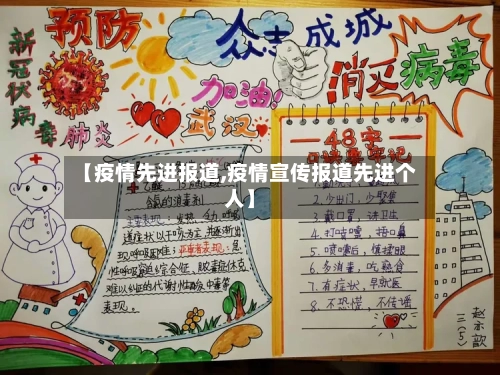 预防
新冠状病毒肺炎
众志成城
消灭病毒
加油!
武汉
48字
【疫情先进报道,疫情宣传报道先进个
人】
2.少出门,少聚集
3.戴口罩,讲卫生
4.打喷嚏,捂口鼻
5.喷嚏后,慎揉眼
6.勤消毒,吃熟食
7.有症状,早就医
8.不恐慌,不传谣
乙醚、75%
含氯的消毒剂
主要表现:发热、乏力、呼吸
道症状以干咳为主,并逐渐出
现呼吸困难;严重者表现:急
性呼吸窘迫综合征、脓毒症休克、
难以纠正的代谢性酸中毒等
表现。
三(5)